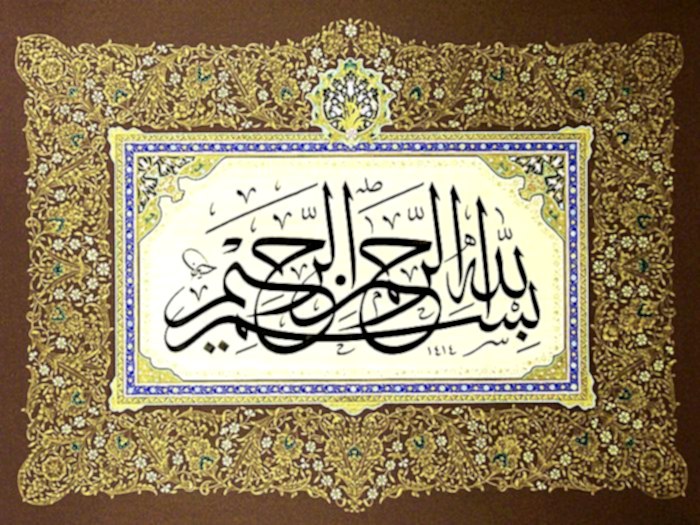 بِسْمِ اللهِ الرَّحْمٰنِ الرَّحِيْمِ
١٤١٤